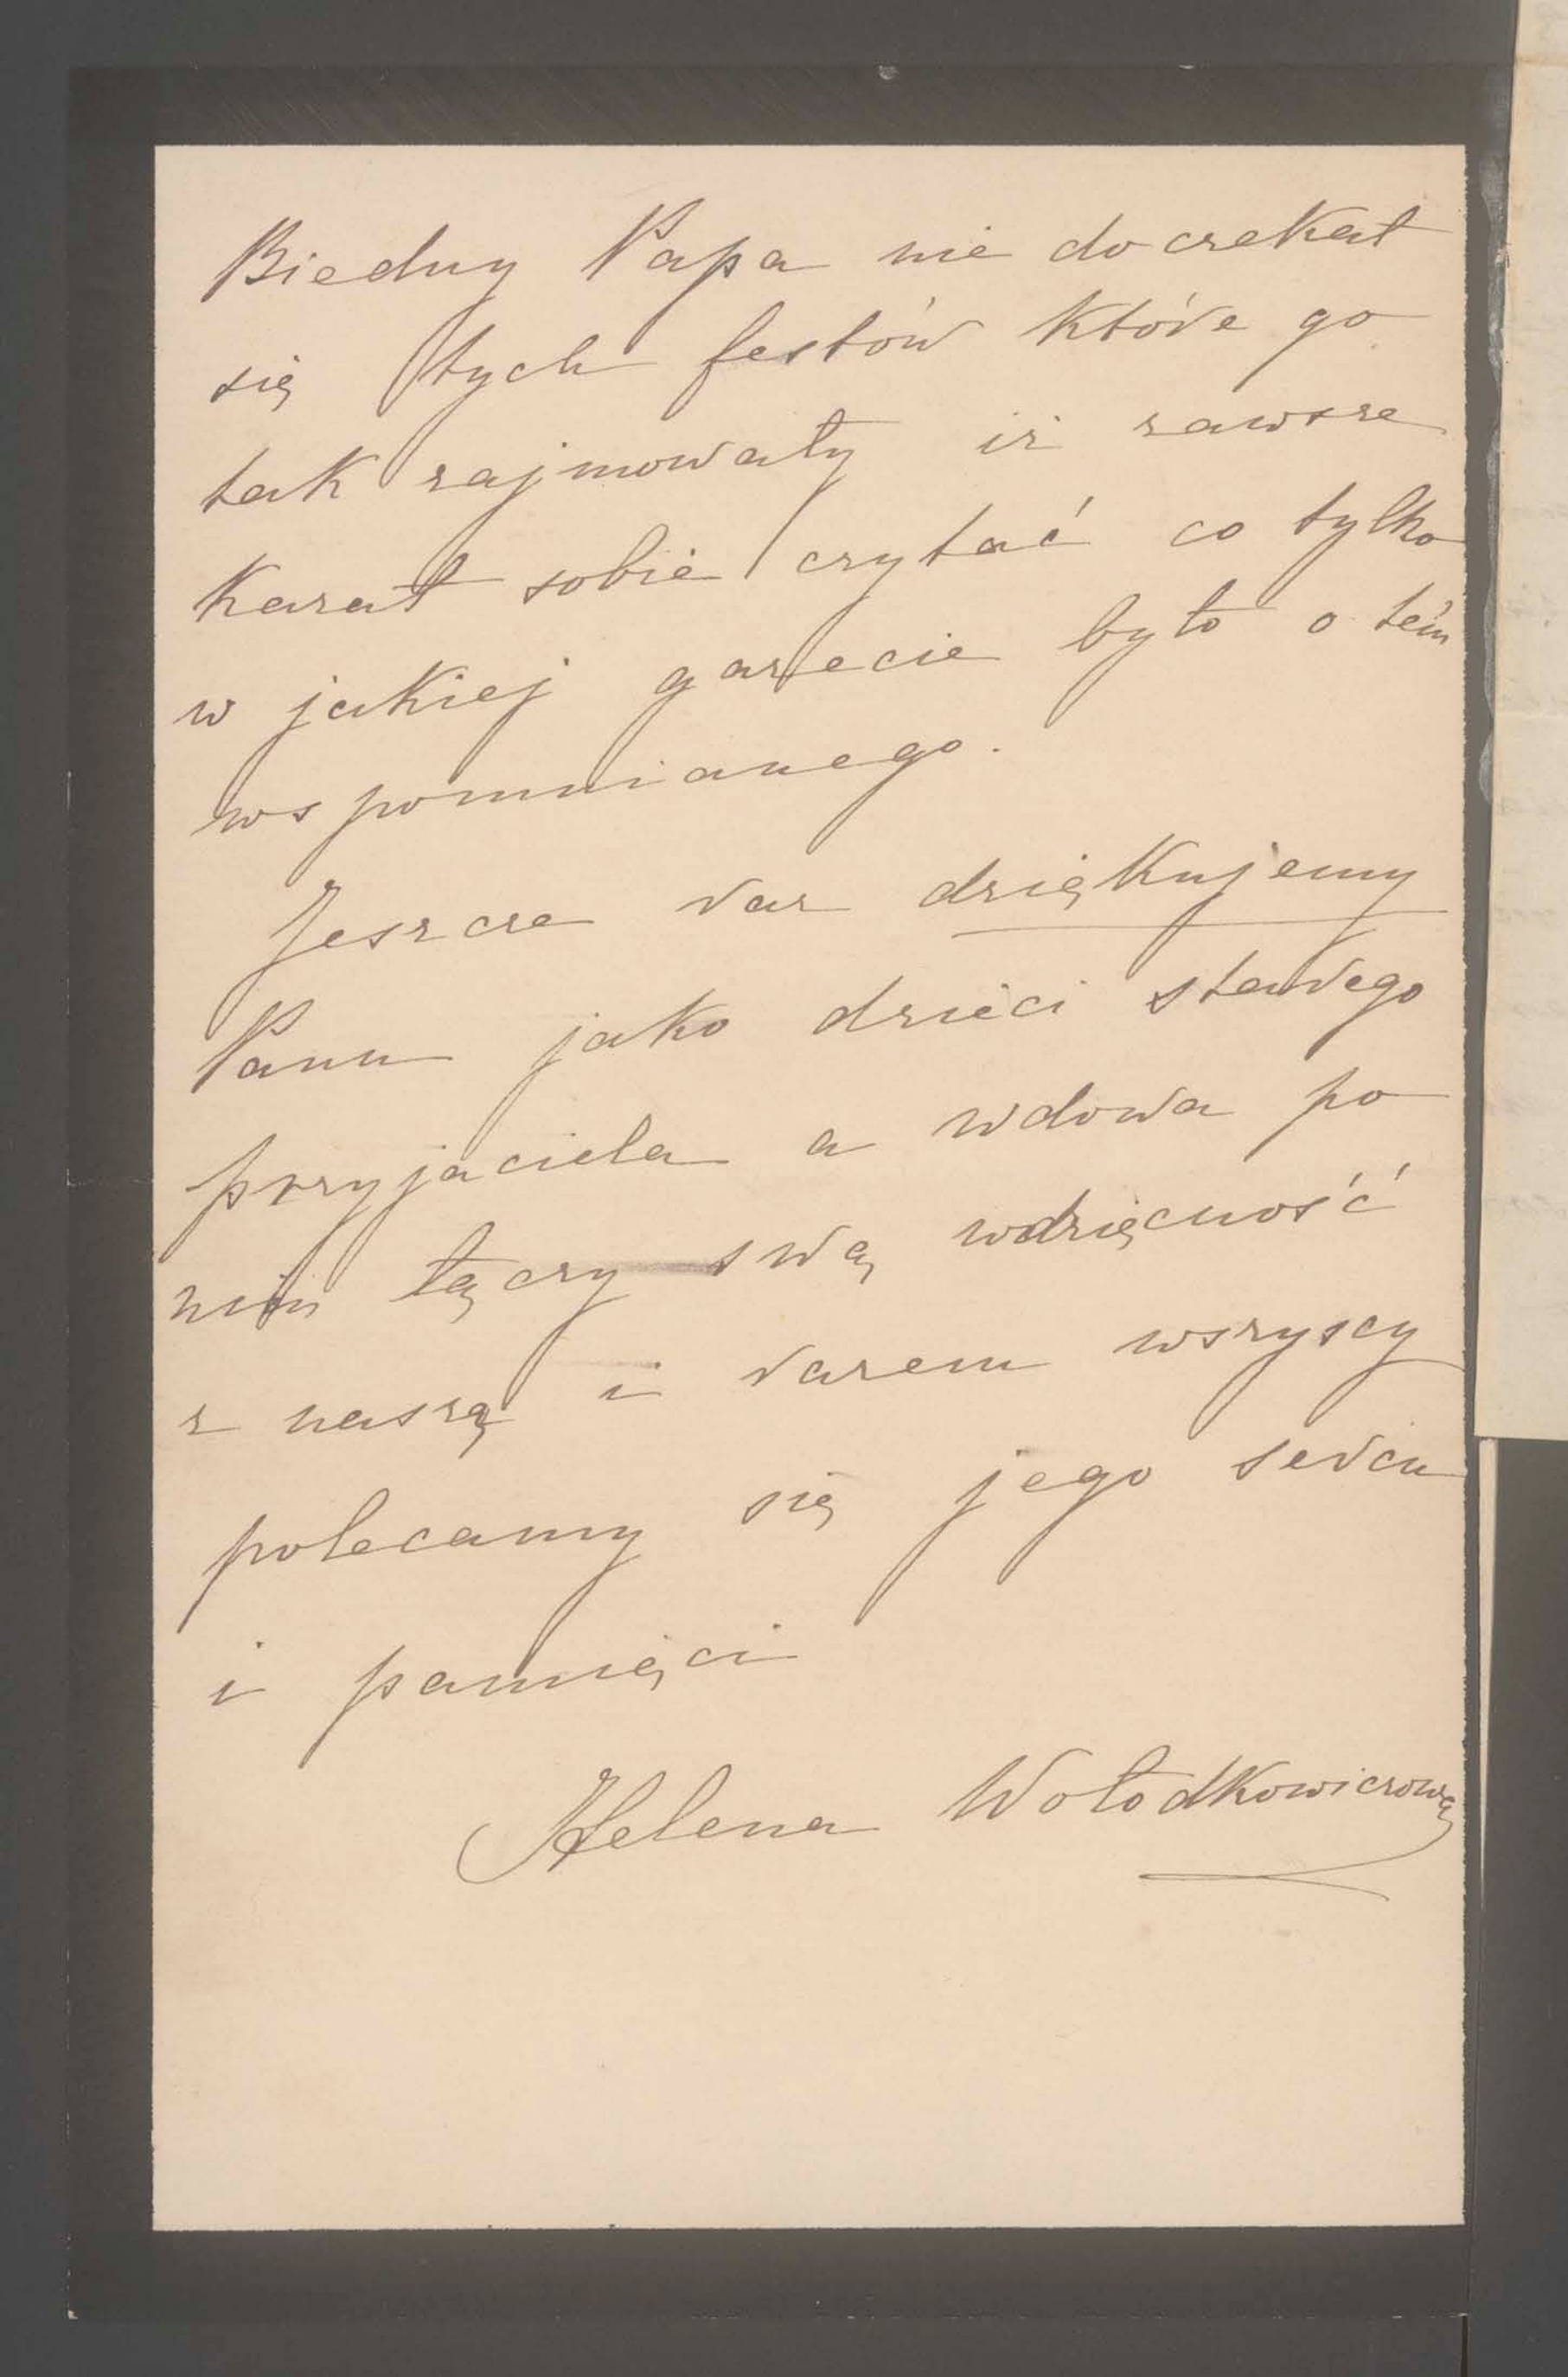 Biedny Papa nie doczekał
się tych festów które go
tak zajmowały iż zawsze
kazał sobie czytać co tylko
w jakiej gazecie było o tém
wspomnianego.
Jeszcze raz dziękujemy
Panu jako dzieci starego
przyjaciela a wdowa po
nim łączy swą wdzięczność
z naszą i razem wszyscy
polecamy się jego sercu
i pamięci
Helena Wołodkowiczowa